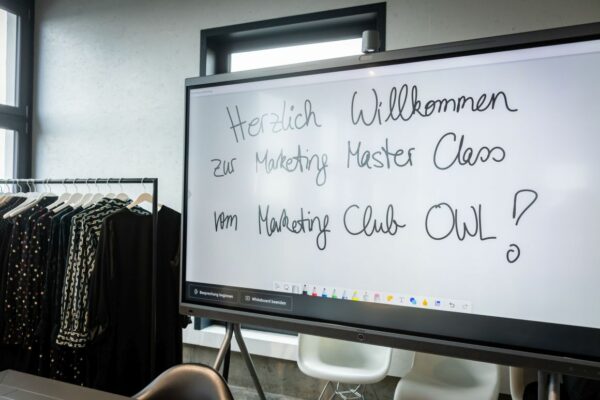 Herzlich Willkommen
zur Marketing Master Class
vom Marketing Club OWL!
Besprechung beginnen
Whiteboard beenden